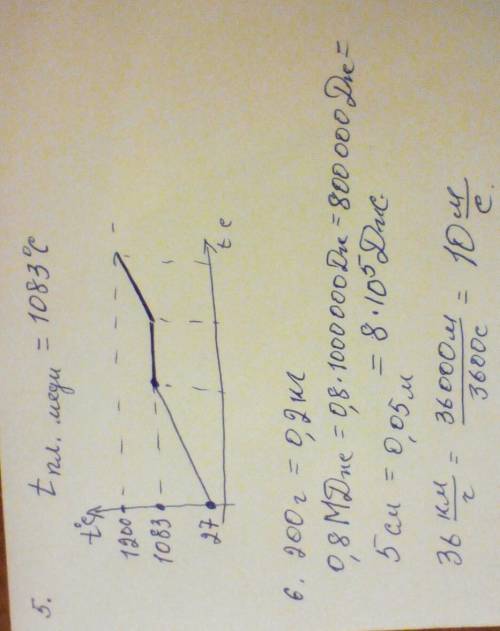 5. t пл. меди = 1083°C
t°C
1200
1083
27
t c
6. 200г = 0,2кг
0,8МДж = 0,8·1000000Дж = 800000Дж =
= 8·10⁵Дж
5см = 0,05м
36 км/г = 36000м/3600с = 10 м/с